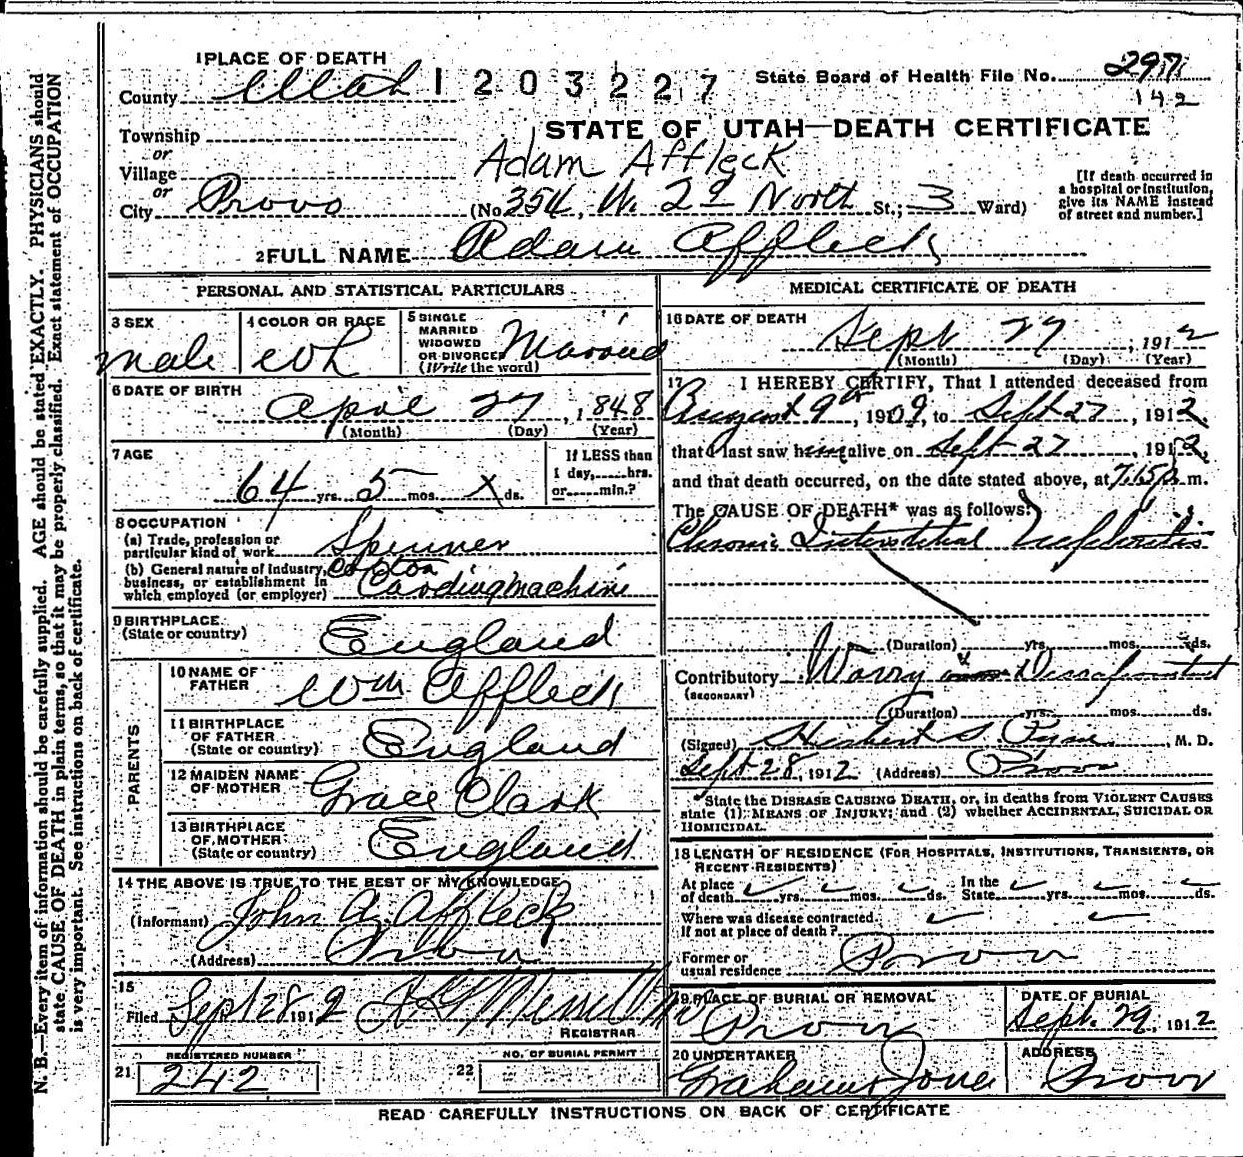 1 PLACE OF DEATH
County Utah 1203227 State Board of Health File No. 297
142
Township
STATE OF UTAH—DEATH CERTIFICATE
or
Village
Adam Affleck
or
City Provo (No. 354, W. 2d North St.; 3 Ward)
[If death occurred in a hospital or institution, give its NAME instead of street and number.]
2 FULL NAME Adam Affleck
PERSONAL AND STATISTICAL PARTICULARS
3 SEX
male
4 COLOR OR RACE
Wh
5 SINGLE
MARRIED
WIDOWED
OR DIVORCED
(Write the word)
Married
6 DATE OF BIRTH
April 27, 1848
(Month) (Day) (Year)
7 AGE
64 yrs. 5 mos. x ds.
If LESS than
1 day, hrs.
or min.?
8 OCCUPATION
(a) Trade, profession or
particular kind of work
Spinner
(b) General nature of Industry,
business, or establishment in
which employed (or employer)
Cotton
Carding machine
9 BIRTHPLACE
(State or country)
England
PARENTS
10 NAME OF
FATHER
Wm Affleck
11 BIRTHPLACE
OF FATHER
(State or country)
England
12 MAIDEN NAME
OF MOTHER
Grace Clark
13 BIRTHPLACE
OF MOTHER
(State or country)
England
14 THE ABOVE IS TRUE TO THE BEST OF MY KNOWLEDGE
(Informant) John A. Affleck
(Address) Provo
15
Filed Sept 28 1912
REGISTRAR
REGISTERED NUMBER
21 242
NO. OF BURIAL PERMIT
22
MEDICAL CERTIFICATE OF DEATH
16 DATE OF DEATH
Sept 27, 1912
(Month) (Day) (Year)
17 I HEREBY CERTIFY, That I attended deceased from
August 9th, 1909, to Sept 27, 1912,
that I last saw him alive on Sept 27, 1912,
and that death occurred, on the date stated above, at 7.15 p m.
The CAUSE OF DEATH* was as follows:
Chronic Interstitial Nephritis
(Duration) yrs. mos. ds.
Contributory Worry &
(SECONDARY)
(Duration) yrs. mos. ds.
(Signed) Herbert S. Pyne, M. D.
Sept 28, 1912 (Address) Provo
*State the DISEASE CAUSING DEATH, or, in deaths from VIOLENT CAUSES
state (1) MEANS OF INJURY; and (2) whether ACCIDENTAL, SUICIDAL OR
HOMICIDAL.
18 LENGTH OF RESIDENCE (FOR HOSPITALS, INSTITUTIONS, TRANSIENTS, OR
RECENT RESIDENTS)
At place
of death yrs. mos. ds.
In the
State yrs. mos. ds.
Where was disease contracted
If not at place of death?
Former or
usual residence Provo
19 PLACE OF BURIAL OR REMOVAL
Provo
DATE OF BURIAL
Sept. 29, 1912
20 UNDERTAKER
ADDRESS
Provo
READ CAREFULLY INSTRUCTIONS ON BACK OF CERTIFICATE
N. B.—Every item of information should be carefully supplied. AGE should be stated EXACTLY. PHYSICIANS should
state CAUSE OF DEATH in plain terms, so that it may be properly classified. Exact statement of OCCUPATION
is very important. See instructions on back of certificate.